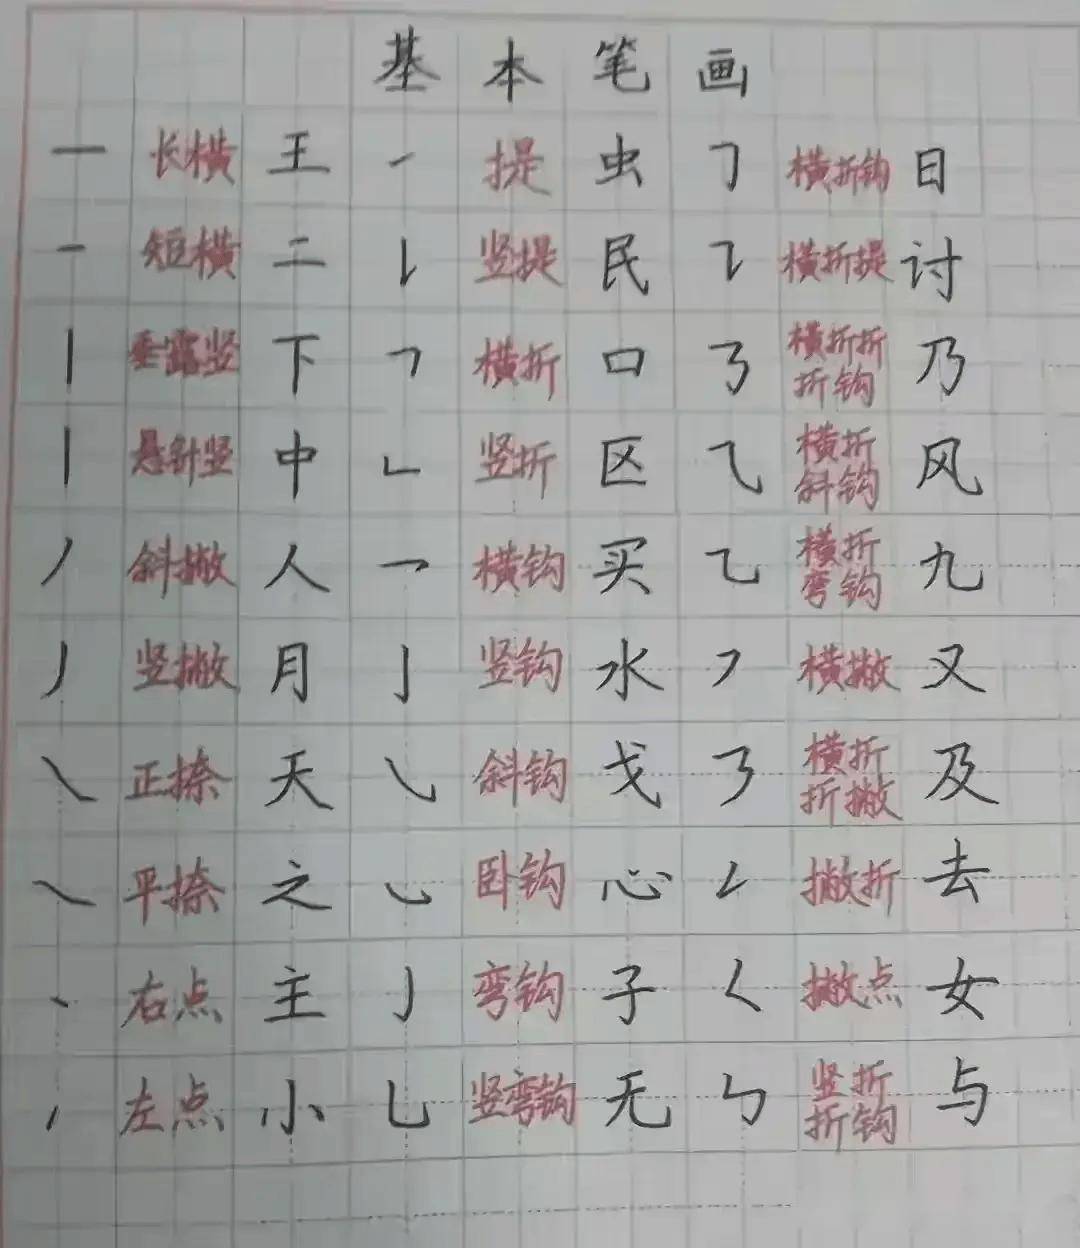 基本笔画
一 长横 王 ㇀ 提 虫 ㇆ 横折钩 日
一 短横 二 ㇙ 竖提 民 ㇊ 横折提 讨
丨 垂露竖 下 ㇕ 横折 口 ㇡ 横折折折钩 乃
丨 悬针竖 中 ㇗ 竖折 区 ⺄ 横折斜钩 风
丿 斜撇 人 ㇖ 横钩 买 ㇈ 横折弯钩 九
㇓ 竖撇 月 亅 竖钩 水 ㇇ 横撇 又
㇏ 正捺 天 ㇂ 斜钩 戈 ㇋ 横折折撇 及
㇏ 平捺 之 ㇃ 卧钩 心 ㇜ 撇折 去
丶 右点 主 ㇁ 弯钩 子 ㇛ 撇点 女
㇒ 左点 小 ㇟ 竖弯钩 无 ㇉ 竖折折钩 与